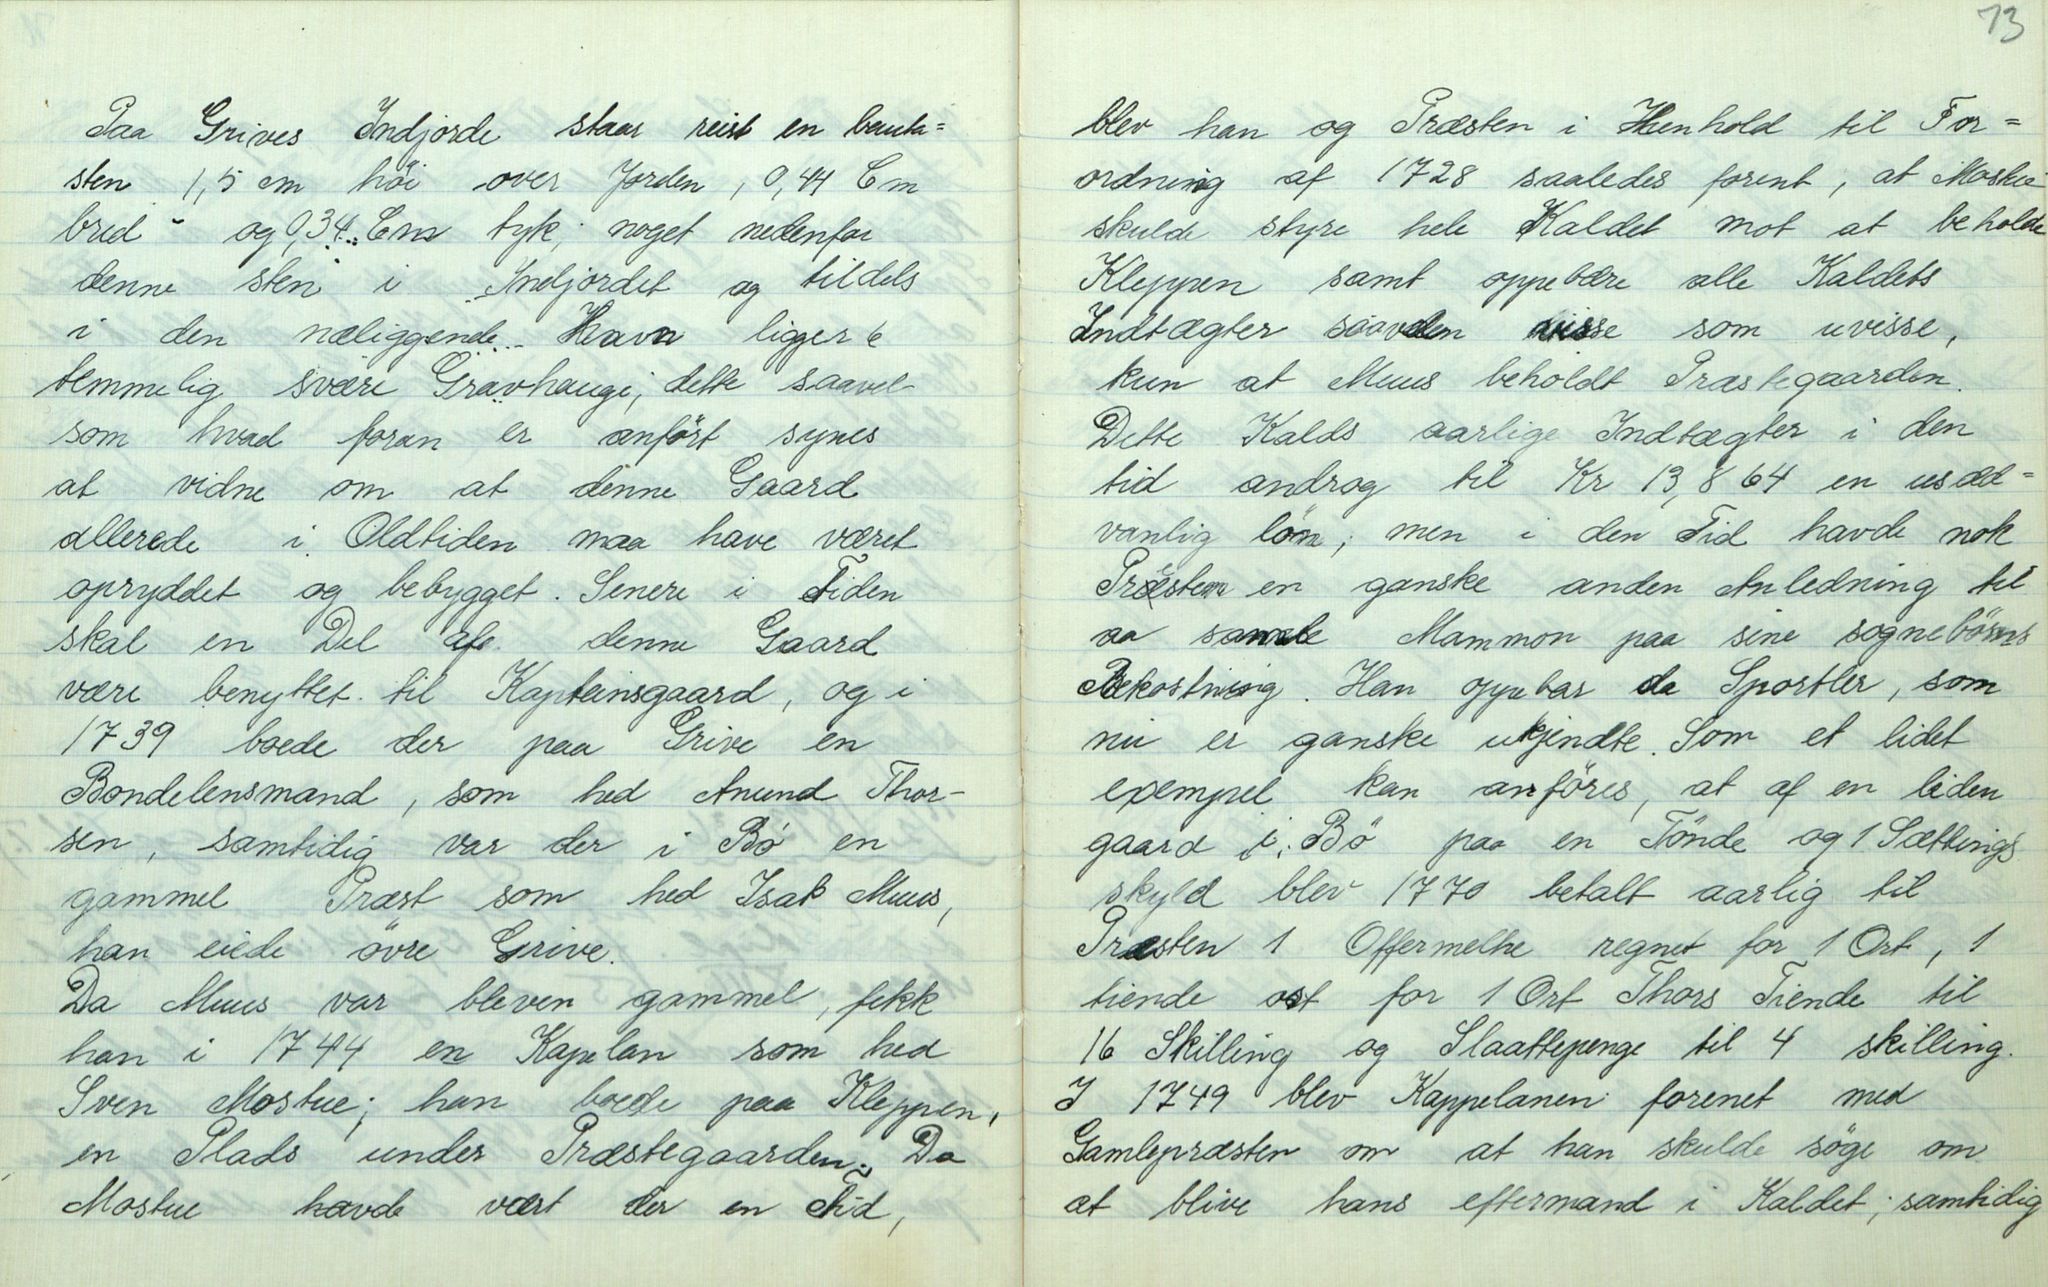 Paa Grives Indjorde staar reist en bauta=
sten 1,5 cm höi over Jorden, 0,44 Cm
bred og 0,34 Cm tyk; noget nedenfor
denne sten i Indjordet og tildels
i den næliggende Havn ligger 6
temmelig svære Gravhauge, dette saavel
som hvad foran er anført synes
at vidne om at denne Gaard
allerede i Oldtiden maa have været
opryddet og bebygget. Senere i Tiden
skal en Del af denne Gaard
være benyttet til Kapteinsgaard, og i
1739 boede der paa Grive en
Bondelensmand, som hed Anund Thor-
sen, samtidig var der i Bö en
gammel Præst som hed Isak Muus,
han eiede övre Grive.
Da Muus var bleven gammel, fekk
han i 1744 en Kapelan som hed
Sven Mostue; han boede paa Kleppen,
en Plads under Præstegaarden. Da
Mostue havde vært der en Tid,
73
blev han og Præsten i Henhold til For=
ordning af 1728 saaledes forent, at Mostue
skulde styre hele Kaldet mot at beholde
Kleppen samt oppebære alle Kaldets
Indtægter saavden visse som uvisse,
kun at Muus beholdt Præstegaarden.
Dette Kalds aarlige Indtægter i den
tid androg til Kr 13,864 en usæd=
vanlig lön; men i den Tid havde nok
Præstene en ganske anden Anledning til
aa samle Mammon paa sine sognebörns
Bekostning. Han oppebar da Sportler, som
nu er ganske ukjendte. Som et lidet
exempel kan anföres, at af en liden
gaard i Bö paa en Tönde og 1 Sættings
skyld blev 1770 betalt aarlig til
Præsten 1 Offermelke regnet for 1 Ort, 1
tiende ost for 1 Ort Thors Tiende til
16 Skilling og Slaattepenge til 4 skilling.
I 1749 blev Kappelanen forenet med
Gamlepræsten om at han skulde söge om
at blive hans eftermand i Kaldet; samtidig